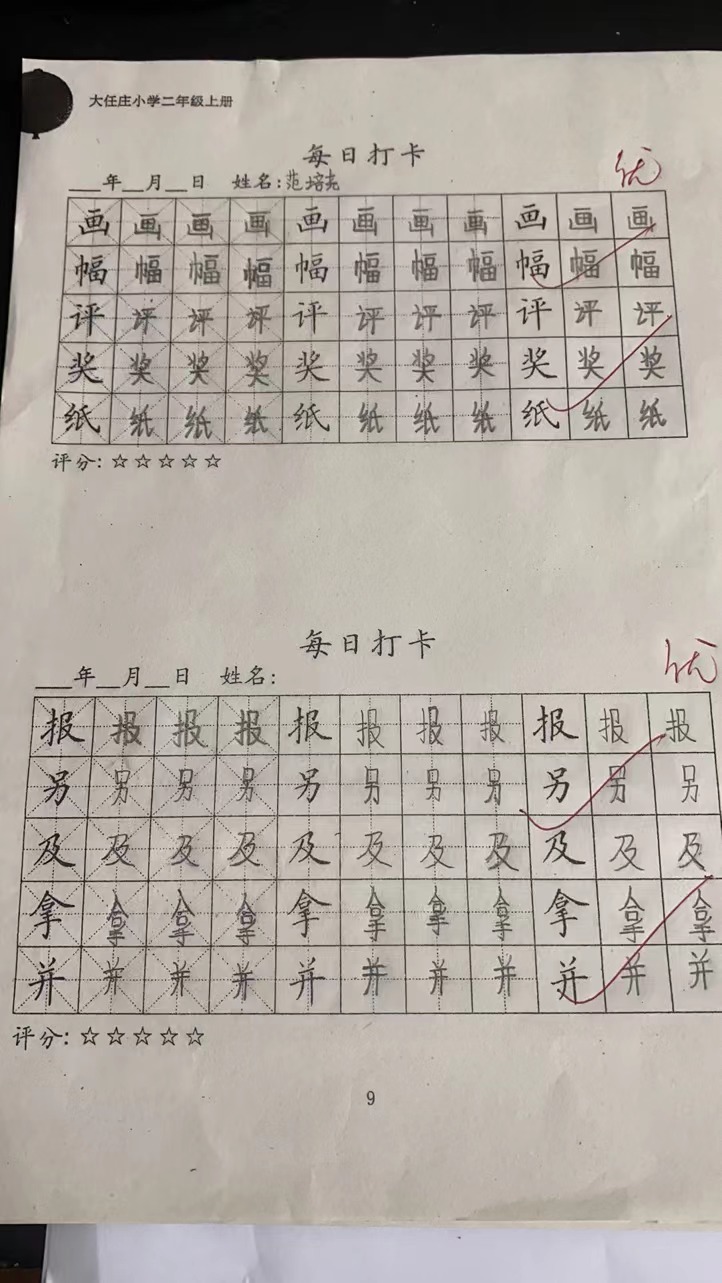 大任庄小学二年级上册
每日打卡
优
___年__月__日 姓名:范培尧
画画画画画画画画画画画
幅幅幅幅幅幅幅幅幅幅幅
评评评评评评评评评评评
奖奖奖奖奖奖奖奖奖奖奖
纸纸纸纸纸纸纸纸纸纸纸
评分:☆☆☆☆☆
每日打卡
优
___年__月__日 姓名:
报报报报报报报报报报报
另另另另另另另另另另另
及及及及及及及及及及及
拿拿拿拿拿拿拿拿拿拿拿
并并并并并并并并并并并
评分:☆☆☆☆☆
9